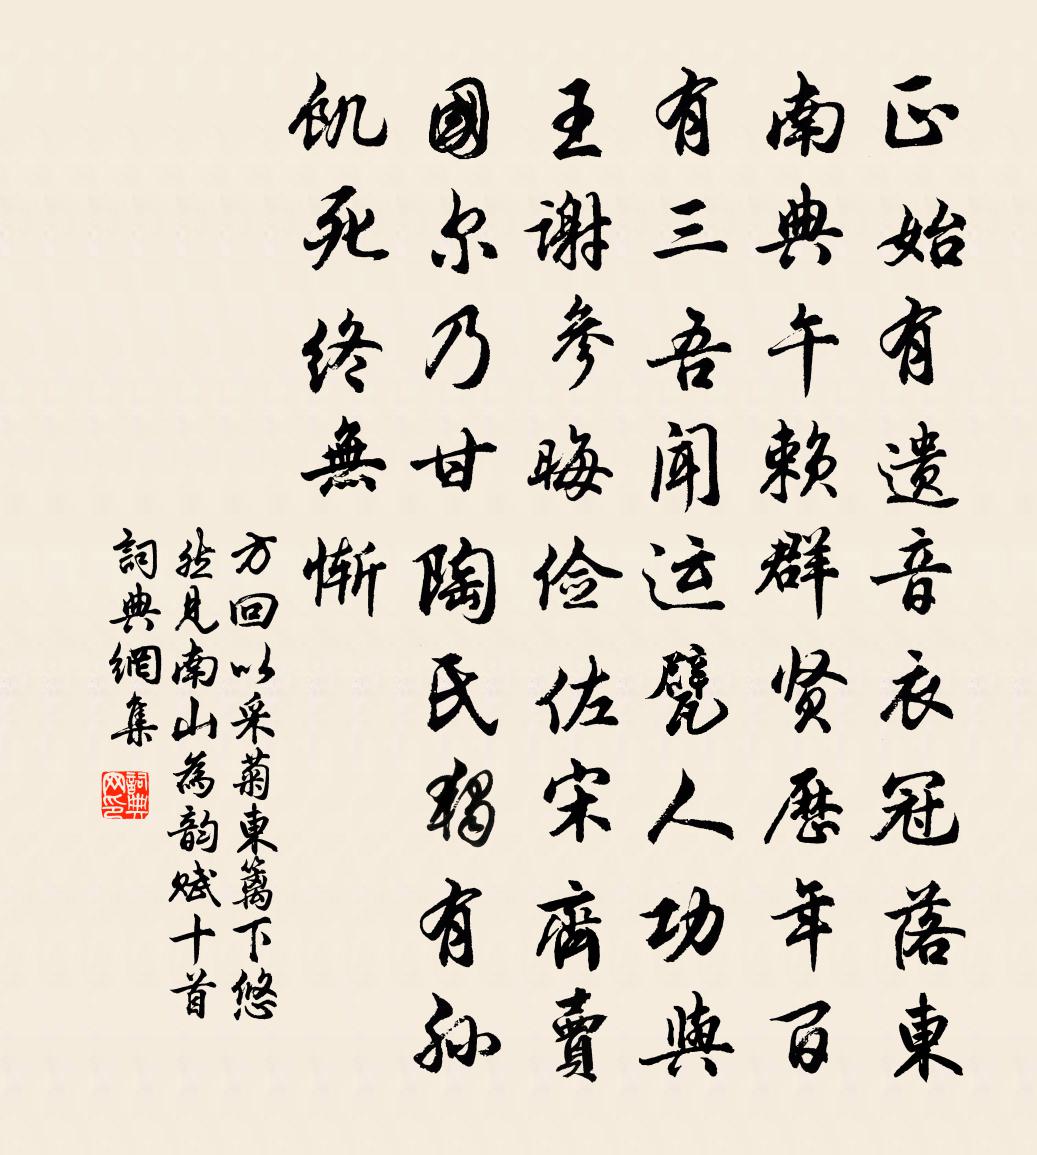 正始有遗音衣冠落東
南典午赖群贤歷年百
有三吾闻运甓人功與
王谢參晦俭佐宋齊賣
國尔乃甘陶氏独有孙
飢死终無惭
方回以采菊東篱下悠
然見南山為韵赋十首
詞典網集
詞典网印